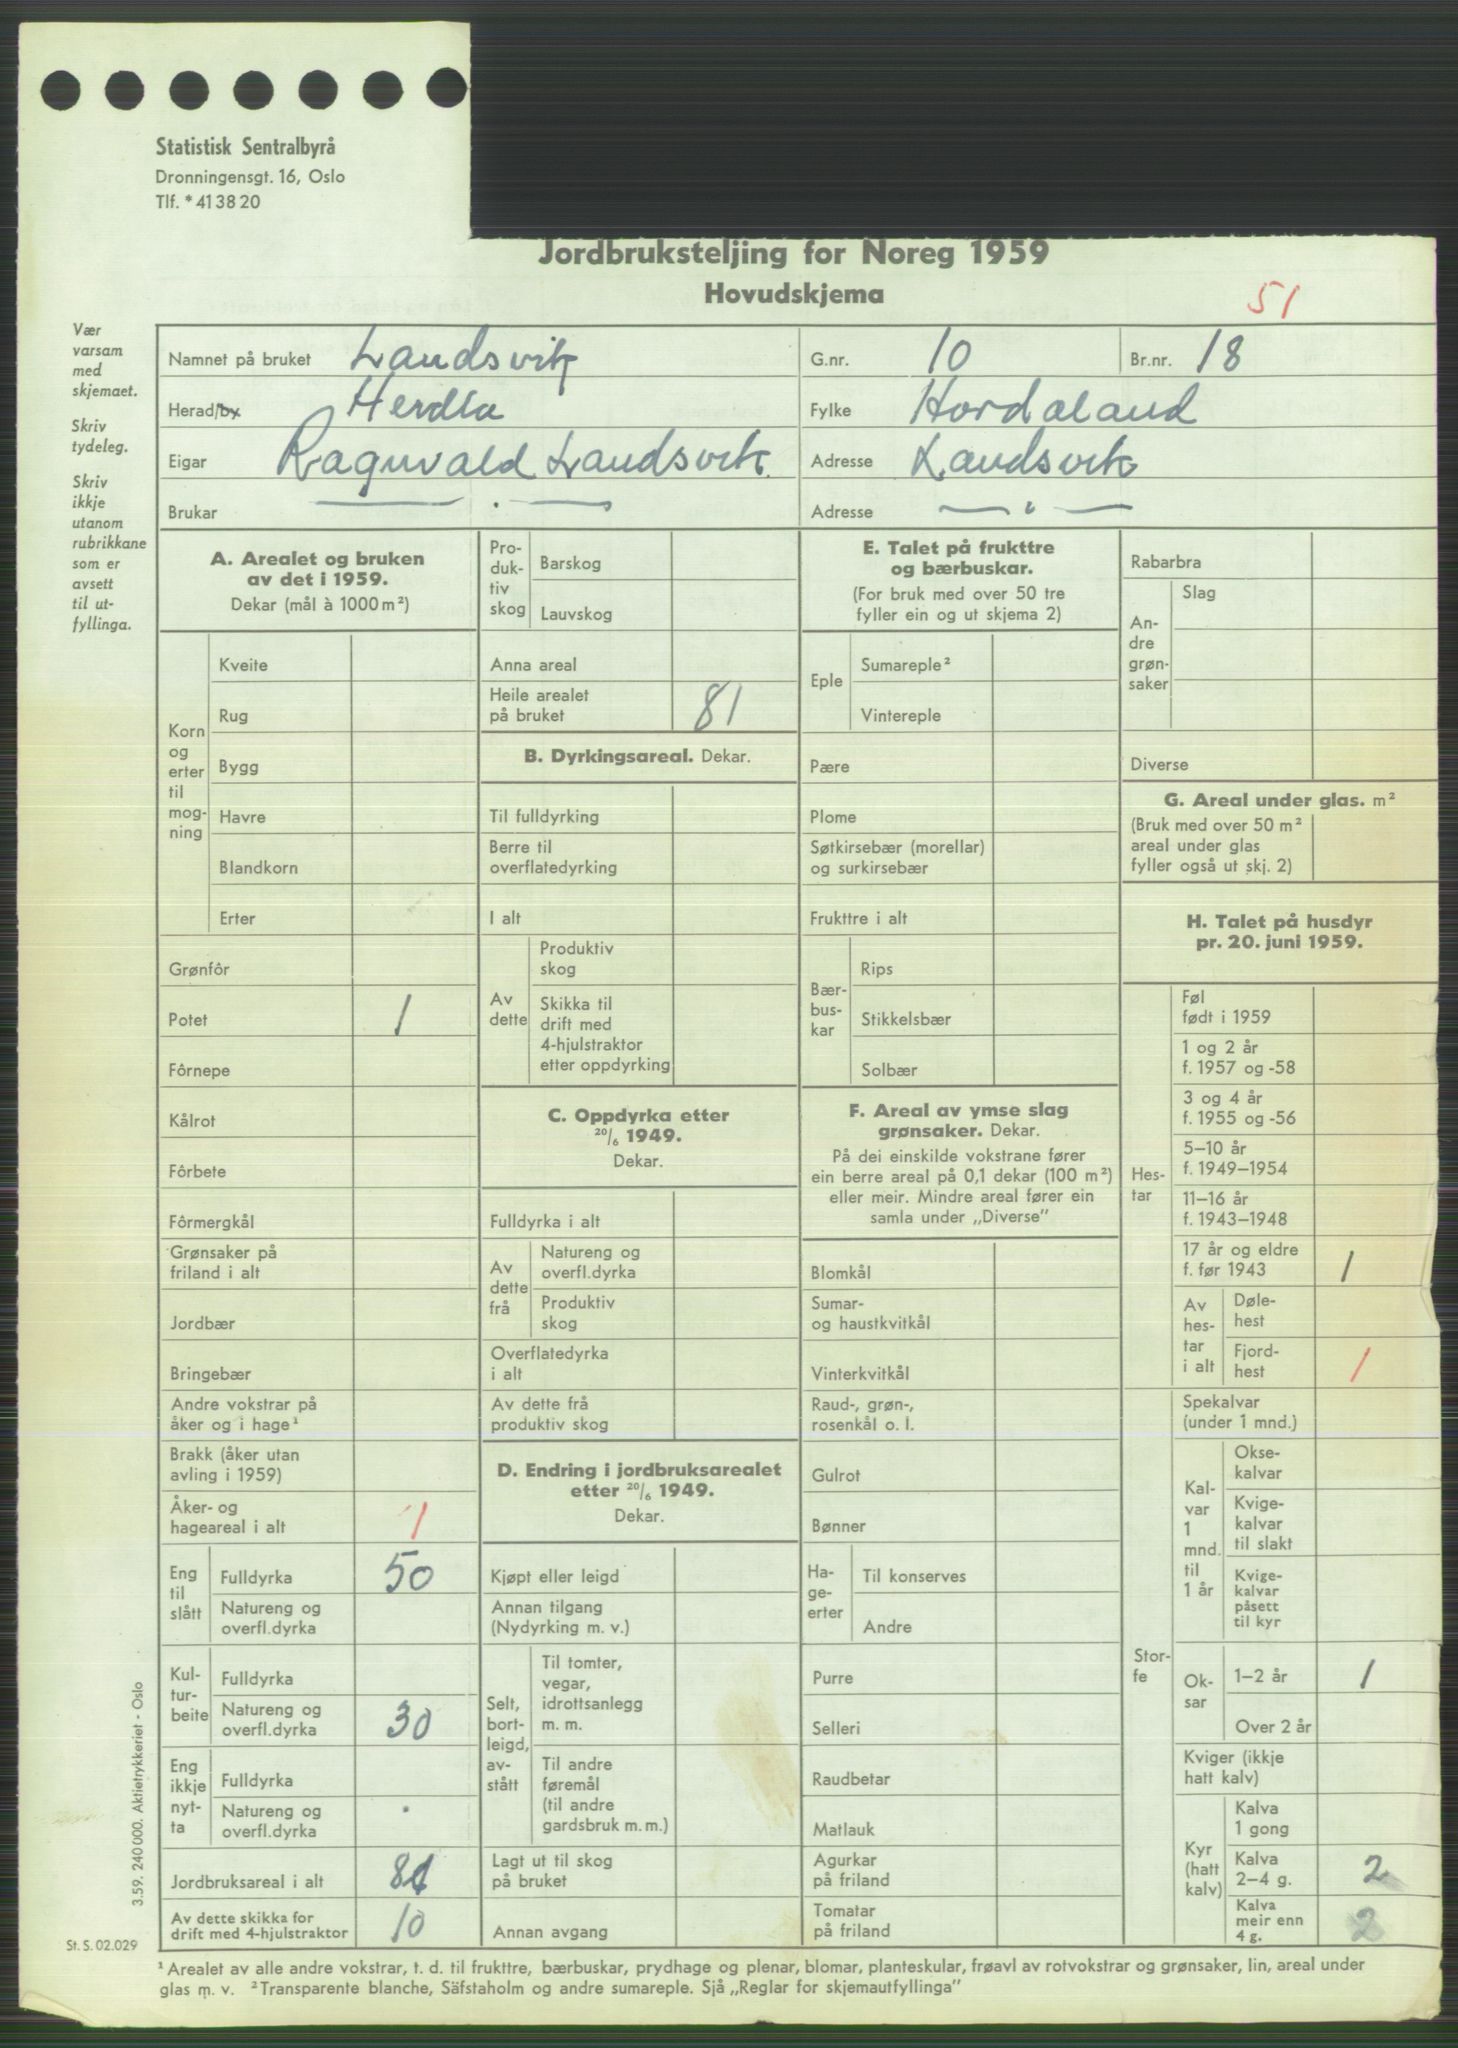 Statistisk Sentralbyrå
Dronningensgt. 16, Oslo
Tlf. * 41 38 20
Jordbruksteljing for Noreg 1959
Hovudskjema
51
Vær
varsam
med
skjemaet.
Skriv
tydeleg.
Skriv
ikkje
utanom
rubrikkane
som er
avsett
til ut-
fyllinga.
Namnet på bruket Landsvik G.nr. 10 Br.nr. 18
Herad/by Herdla Fylke Hordaland
Eigar Ragnvald Landsvik Adresse Landsvik
Brukar — . — Adresse — . —
A. Arealet og bruken
av det i 1959.
Dekar (mål à 1000 m²)
Korn
og
erter
til
mog-
ning
Kveite
Rug
Bygg
Havre
Blandkorn
Erter
Grønfôr
Potet 1
Fôrnepe
Kålrot
Fôrbete
Fôrmergkål
Grønsaker på
friland i alt
Jordbær
Bringebær
Andre vokstrar på
åker og i hage¹
Brakk (åker utan
avling i 1959)
Åker- og
hageareal i alt 1
Eng
til
slått
Fulldyrka 50
Natureng og
overfl.dyrka
Kul-
tur-
beite
Fulldyrka
Natureng og
overfl.dyrka 30
Eng
ikkje
nyt-
ta
Fulldyrka
Natureng og
overfl.dyrka
Jordbruksareal i alt 81
Av dette skikka for
drift med 4-hjulstraktor 10
Pro-
duk-
tiv
skog
Barskog
Lauvskog
Anna areal
Heile arealet
på bruket 81
B. Dyrkingsareal. Dekar.
Til fulldyrking
Berre til
overflatedyrking
I alt
Av
dette
Produktiv
skog
Skikka til
drift med
4-hjulstraktor
etter oppdyrking
C. Oppdyrka etter
20/6 1949.
Dekar.
Fulldyrka i alt
Av
dette
frå
Natureng og
overfl.dyrka
Produktiv
skog
Overflatedyrka
i alt
Av dette frå
produktiv skog
D. Endring i jordbruksarealet
etter 20/6 1949.
Dekar.
Kjøpt eller leigd
Annan tilgang
(Nydyrking m. v.)
Selt,
bort-
leigd,
av-
stått
Til tomter,
vegar,
idrottsanlegg
m. m.
Til andre
føremål
(til andre
gardsbruk m. m.)
Lagt ut til skog
på bruket
Annan avgang
E. Talet på frukttre
og bærbuskar.
(For bruk med over 50 tre
fyller ein og ut skjema 2)
Eple
Sumareple²
Vintereple
Pære
Plome
Søtkirsebær (morellar)
og surkirsebær
Frukttre i alt
Bær-
bus-
kar
Rips
Stikkelsbær
Solbær
F. Areal av ymse slag
grønsaker. Dekar.
På dei einskilde vokstrane fører
ein berre areal på 0,1 dekar (100 m²)
eller meir. Mindre areal fører ein
samla under „Diverse”
Blomkål
Sumar-
og haustkvitkål
Vinterkvitkål
Raud-, grøn-,
rosenkål o. l.
Gulrot
Bønner
Ha-
ge-
erter
Til konserves
Andre
Purre
Selleri
Raudbetar
Matlauk
Agurkar
på friland
Tomatar
på friland
Rabarbra
An-
dre
grøn-
saker
Slag
Diverse
G. Areal under glas. m²
(Bruk med over 50 m²
areal under glas
fyller også ut skj. 2)
H. Talet på husdyr
pr. 20. juni 1959.
Hes-
tar
Føl
født i 1959
1 og 2 år
f. 1957 og -58
3 og 4 år
f. 1955 og -56
5–10 år
f. 1949–1954
11–16 år
f. 1943–1948
17 år og eldre
f. før 1943 1
Av
hes-
tar
i alt
Døle-
hest
Fjord-
hest 1
Stor-
fe
Spekalvar
(under 1 mnd.)
Kal-
var
1
mnd.
til
1 år
Okse-
kalvar
Kvige-
kalvar
til slakt
Kvige-
kalvar
påsett
til kyr
Ok-
sar
1–2 år 1
Over 2 år
Kviger (ikkje
hatt kalv)
Kyr
(hatt
kalv)
Kalva
1 gong
Kalva
2–4 g. 2
Kalva
meir enn
4 g. 2
3.59. 240 000. Aktietrykkeriet - Oslo
St. S. 02.029
¹ Arealet av alle andre vokstrar, t. d. til frukttre, bærbuskar, prydhage og plenar, blomar, planteskular, frøavl av rotvokstrar og grønsaker, lin, areal under
glas m. v. ² Transparente blanche, Säfstaholm og andre sumareple. Sjå „Reglar for skjemautfyllinga”